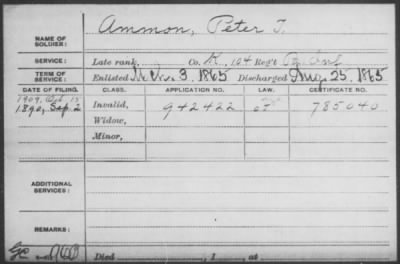 NAME OF SOLDIER: Ammon, Peter T.
SERVICE: Late rank, Co. K, 104 Reg't Pa. Inf.
TERM OF SERVICE: Enlisted Mar. 3, 1865 Discharged Aug. 25, 1865
DATE OF FILING. CLASS. APPLICATION NO. LAW. CERTIFICATE NO.
1909, Oct. 15
1890, Sep. 2 Invalid, 942422 785040
Widow,
Minor,
ADDITIONAL SERVICES:
REMARKS:
Died , 1 , at